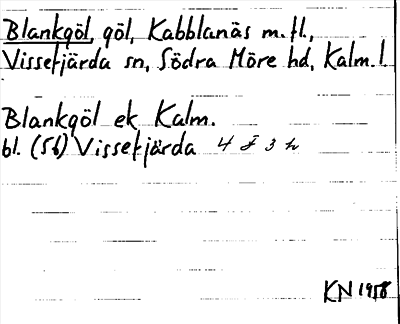 Blankgöl, göl, Kabblanäs m.fl.,
Vissefjärda sn, Södra Möre hd, Kalm.l.
Blankgöl ek Kalm.
bl. (56) Vissefjärda 4 F 3 h
KN 1958